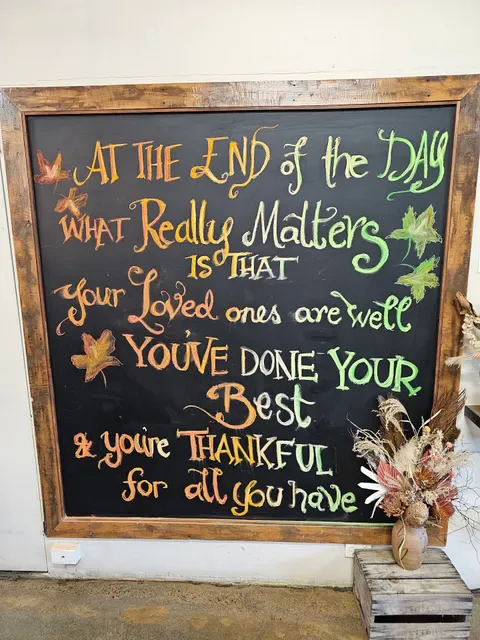 AT THE END of the DAY
WHAT Really Matters
IS THAT
Your Loved ones are well
YOU'VE DONE YOUR
Best
& you're THANKFUL
for all you have